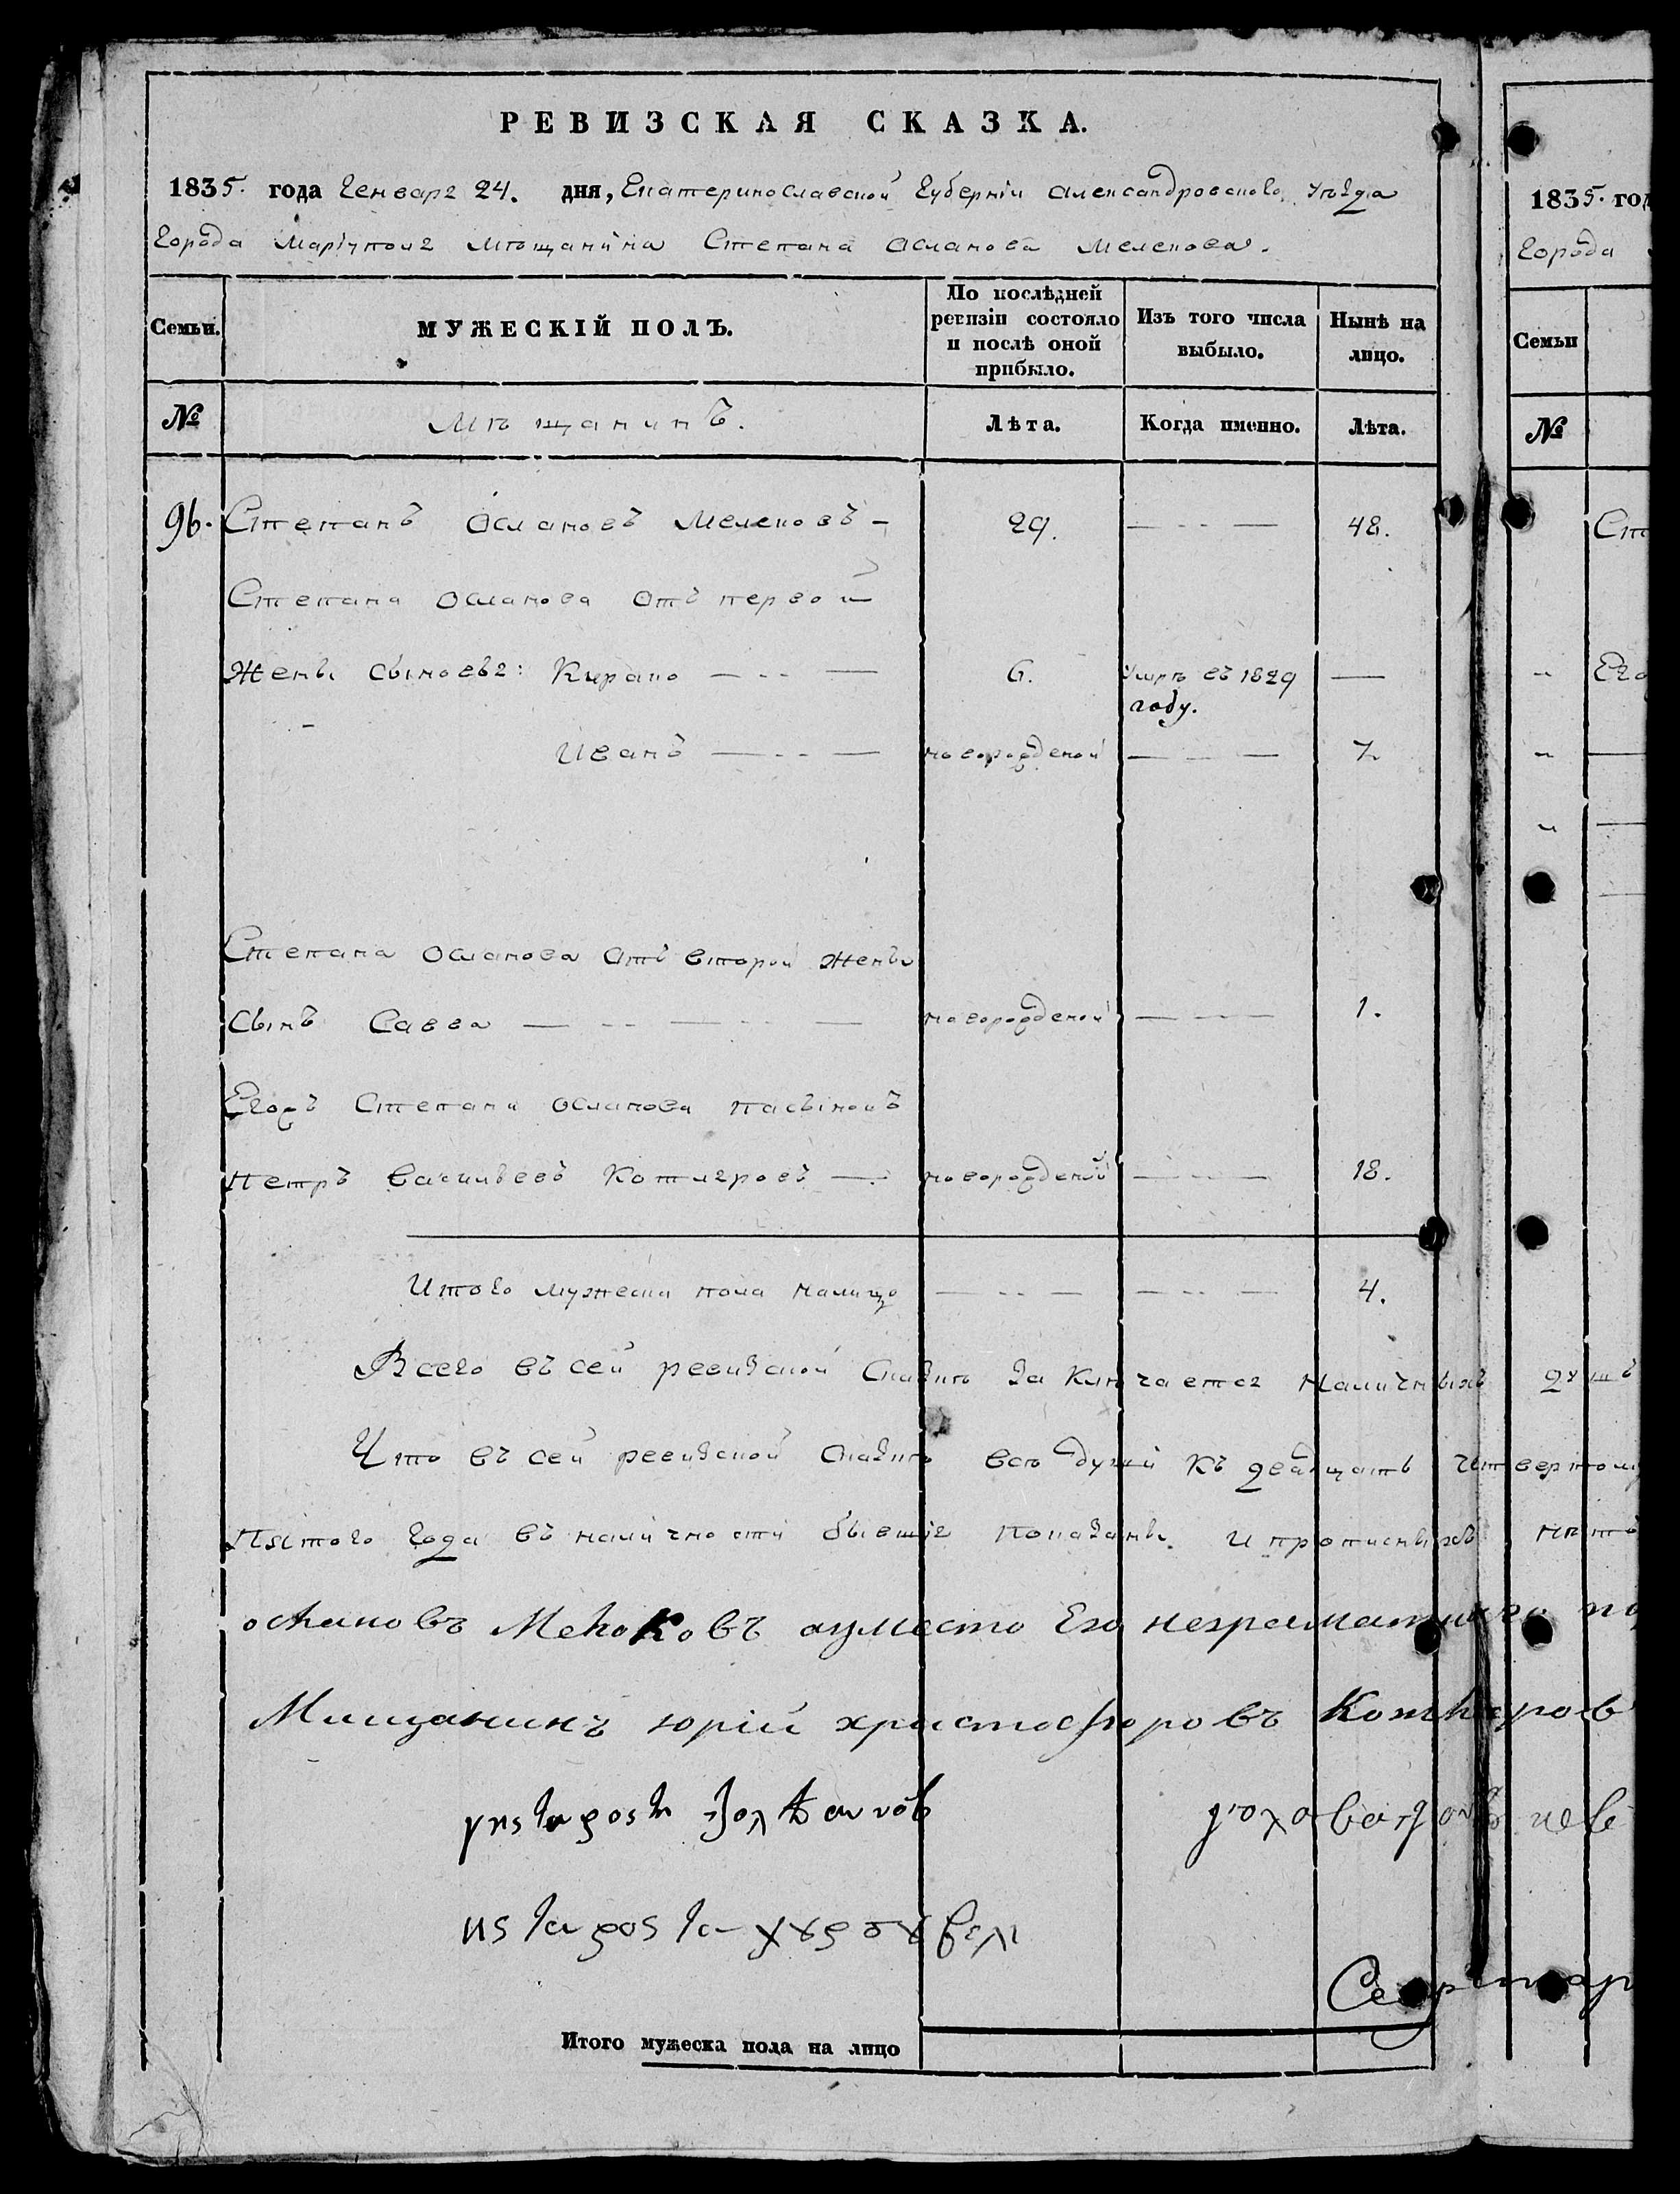 РЕВИЗСКАЯ СКАЗКА.
1835. года Генваря 24. дня, Екатеринославской Губерніи Александровского уѣзда
Города Маріуполя Мѣщанина Степана Асланова Мелекова.
Семьи. МУЖЕСКІЙ ПОЛЪ. По послѣдней ревизіи состояло и послѣ оной прибыло. Изъ того числа выбыло. Нынѣ на лицо.
№ Мѣщанинъ. Лѣта. Когда именно. Лѣта.
96. СтепанъОслановъ Мелековъ - 29. — 48.
Степана Осланова отъ первой
Жены сыновья: Кирако — 6. Умръ въ 1829 году. —
Иванъ — новорожденой — 7
Степана Осланова отъ второй жены
Сынъ Савва — новорожденой — 1.
Егоръ Степана Осланова пасынокъ
Петръ Васильевъ Котляровъ — новорожденый — 18.
Итого мужеска пола налицо — — 4.
Всего въ сей ревизской Сказкѣ заключается Наличныхъ душъ
Что въ сей ревизской сказкѣ всѣ души къ двадцать четвертому
Пятого года въ наличности бывшіе показаны и прописныхъ нѣтъ
Мелековъ вместо Его неграматного
Мищанинъ юрій христофоровъ
Итого мужеска пола на лицо
1835. год
Города
Семьи
№
Ст
Его